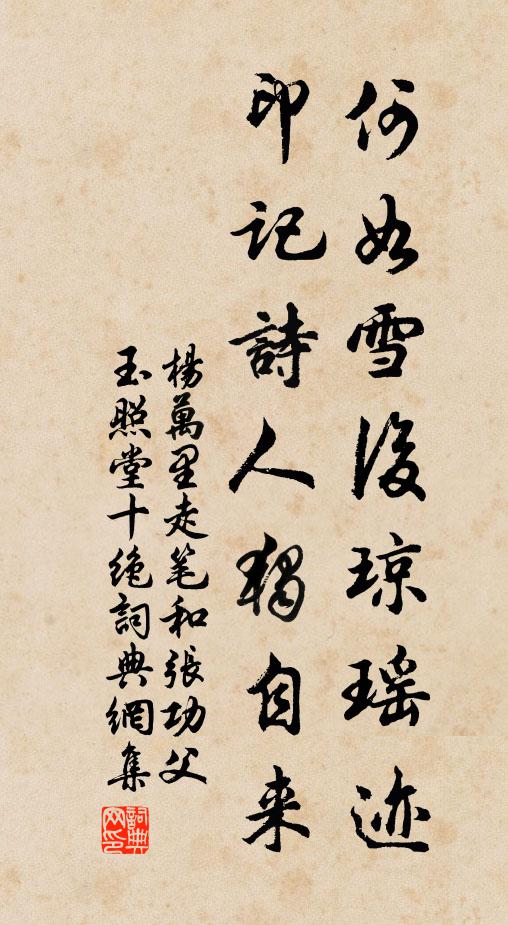 何如雪後瓊瑤迹
印記詩人獨自来
楊萬里走笔和張功父
玉照堂十絶詞典網集
詞典网印